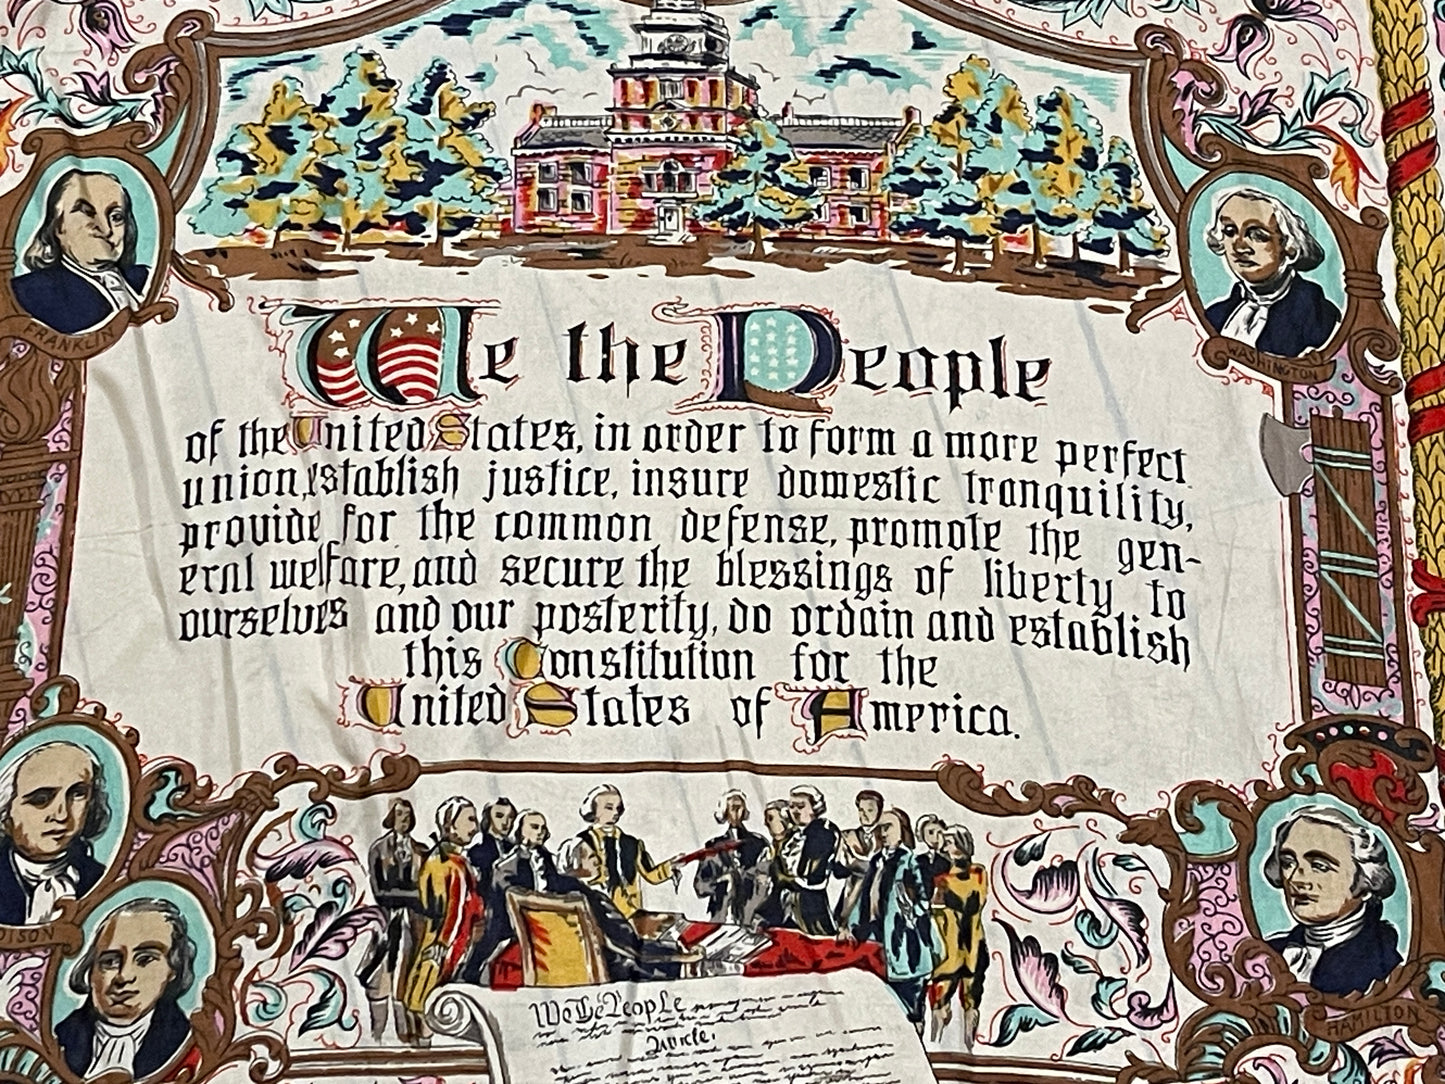 FRANKLIN
WASHINGTON
We the People
of the United States, in order to form a more perfect
union, establish justice, insure domestic tranquility,
provide for the common defense, promote the gen-
eral welfare, and secure the blessings of liberty to
ourselves and our posterity, do ordain and establish
this Constitution for the
United States of America.
HAMILTON
We The People
Article.